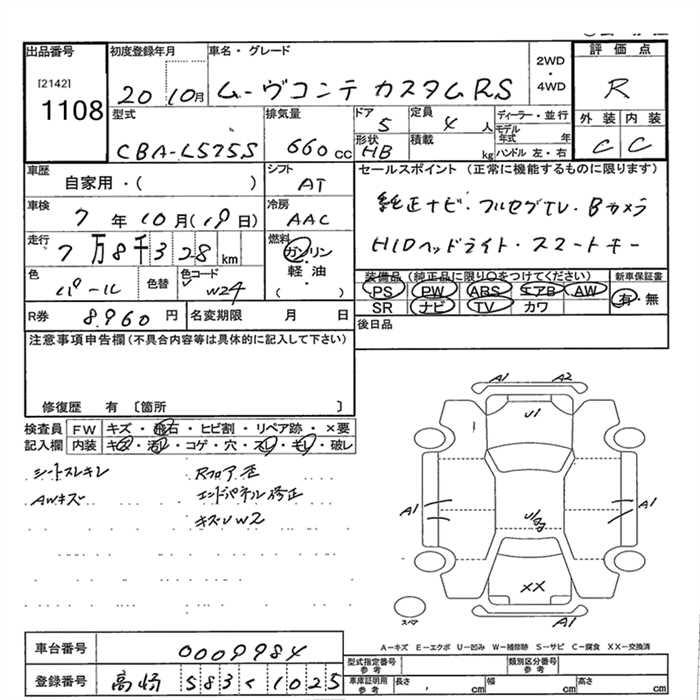 出品番号 初度登録年月 車名・グレード 2WD・4WD 評価点
[2142]
1108 20 10月 ムーヴコンテ カスタムRS R
型式 排気量 ドア 定員 ディーラー・並行 外装 内装
CBA-L575S 660cc 5 4人 モデル年式 年 C C
形状 HB 積載 kg ハンドル 左・右
車歴 シフト セールスポイント(正常に機能するものに限ります)
自家用・( ) AT
車検 冷房 純正ナビ・フルセグTV・Bカメラ
7年10月(19日) AAC
走行 燃料 HIDヘッドライト・スマートキー
7万8千328km ガソリン・軽油( )
色 色替 色コード 装備品(純正品に限り○をつけてください) 新車保証書
パール W24 PS PW ABS エアB AW 有・無
SR ナビ TV カワ
R券 8,960円 名変期限 月 日 後日品
注意事項申告欄(不具合内容等は具体的に記入して下さい)
修復歴 有〔箇所 〕
検査員記入欄 FW キズ・飛石・ヒビ割・リペア跡・×要
内装 キズ・汚レ・コゲ・穴・スレ・キレ・破レ
シートスレキレ Rフロア歪
AWキズ エンドパネル修正
キズUW2
A1 A2
U1
A1 A1
XX
A1
スペア
A―キズ E―エクボ U―凹み W―補修跡 S―サビ C―腐食 XX―交換済
車台番号 0009984 型式指定番号 参考 類別区分番号 参考
登録番号 高崎 583 く 1025 車庫証明用 参考 長さ cm 幅 cm 高さ cm